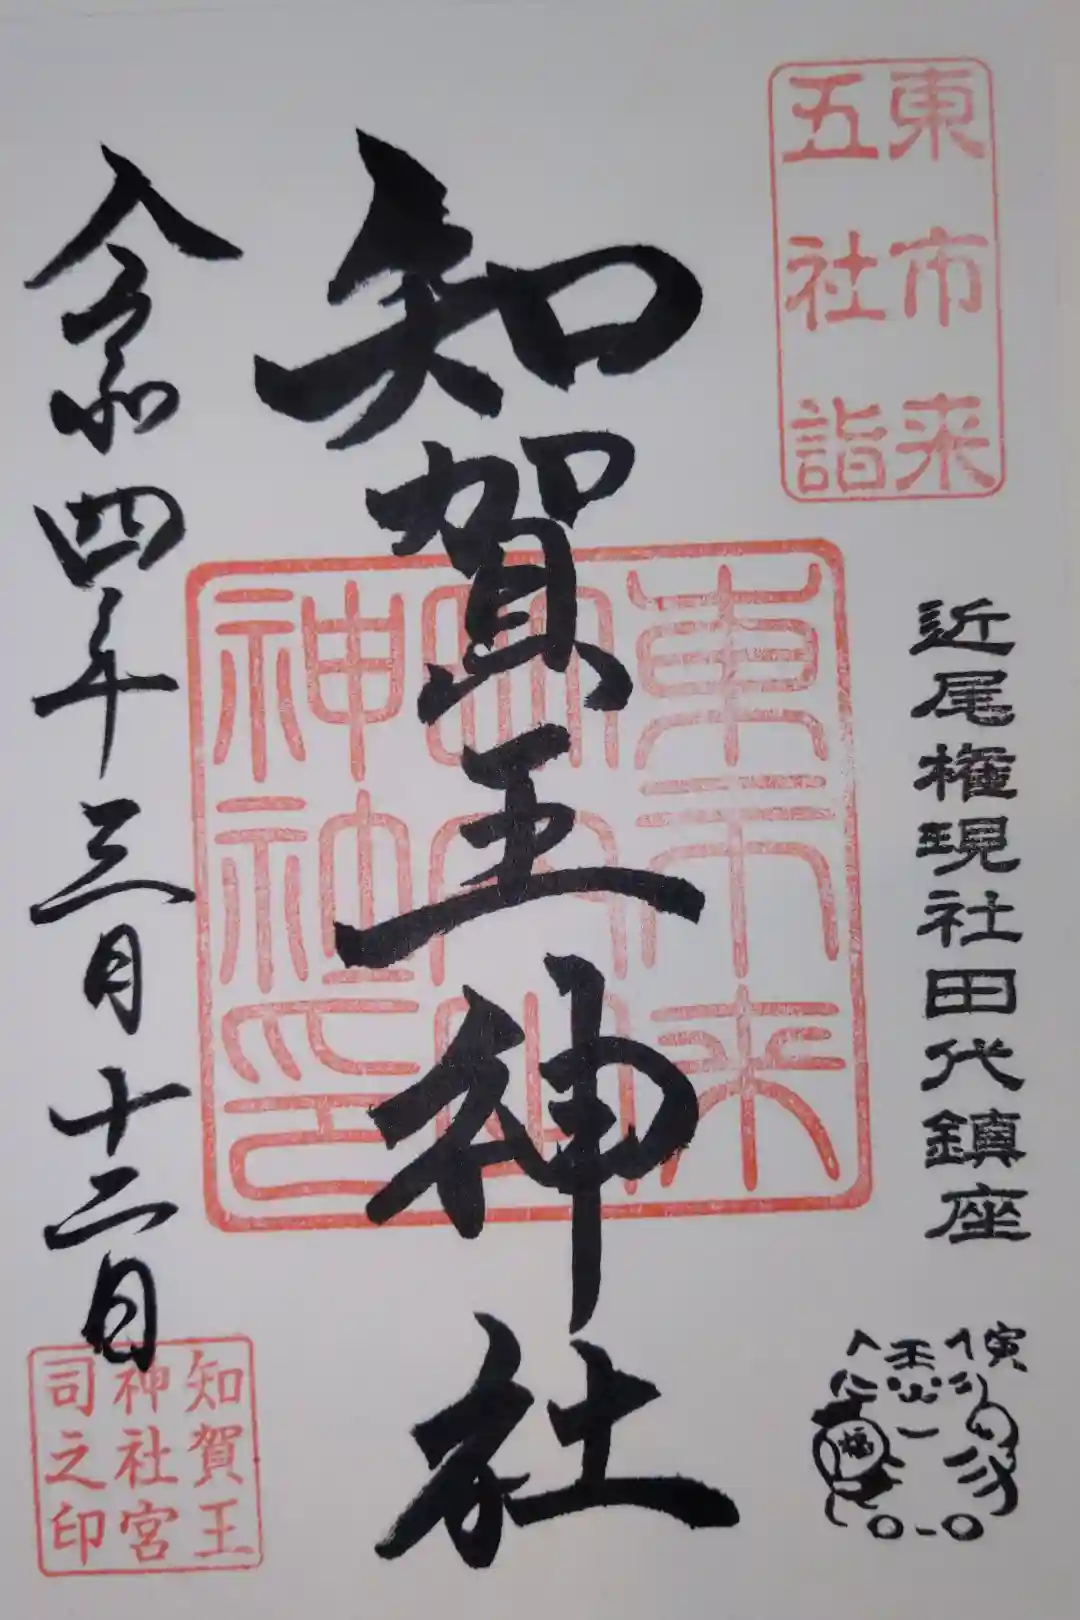 東市来
五社詣
近尾権現社田代鎮座
寅
福
知賀王神社
東市来
神社印
令和四年三月十二日
知賀王
神社宮
司之印